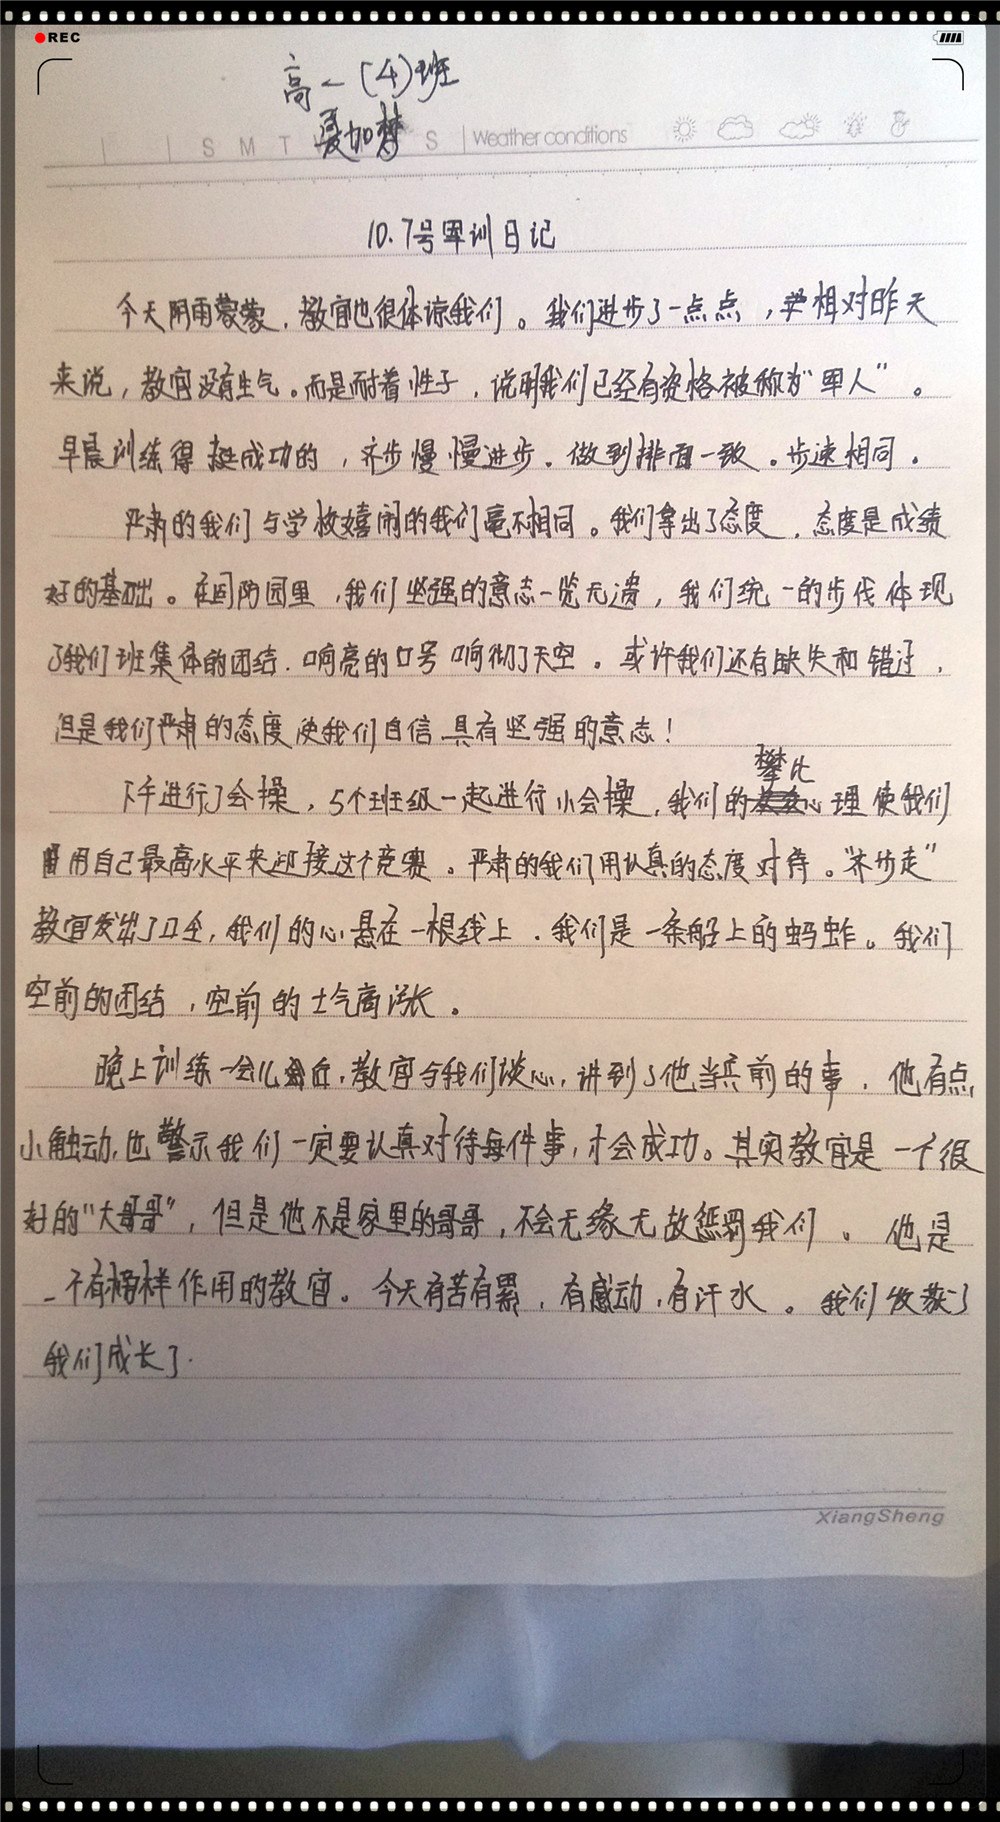 REC
高一(4)班
夏加梦
S M T S Weather conditions
10.7号军训日记
今天阴雨蒙蒙，教官也很体谅我们。我们进步了一点点，相对昨天
来说，教官没有生气。而是耐着性子，说明我们已经有资格被称为“军人”。
早晨训练得挺成功的，齐步慢慢进步。做到排面一致。步速相同。
严肃的我们与学校嬉闹的我们毫不相同。我们拿出了态度，态度是成绩
好的基础。在国防园里，我们坚强的意志一览无遗，我们统一的步伐体现
了我们班集体的团结.响亮的口号响彻了天空。或许我们还有缺失和错过，
但是我们严肃的态度使我们自信具有坚强的意志！
下午进行了会操，5个班级一起进行小会操，我们的攀比心理使我们
用自己最高水平来迎接这个竞赛。严肃的我们用认真的态度对待。“齐步走”
教官发出了口令，我们的心悬在一根线上．我们是一条船上的蚂蚱。我们
空前的团结，空前的士气高涨。
晚上训练一会儿后，教官与我们谈心，讲到了他当兵前的事．他有点
小触动，也警示我们一定要认真对待每件事，才会成功。其实教官是一个很
好的“大哥哥”，但是他不是家里的哥哥，不会无缘无故惩罚我们。他是
一个有榜样作用的教官。今天有苦有累，有感动，有汗水。我们收获了
我们成长了.
XiangSheng